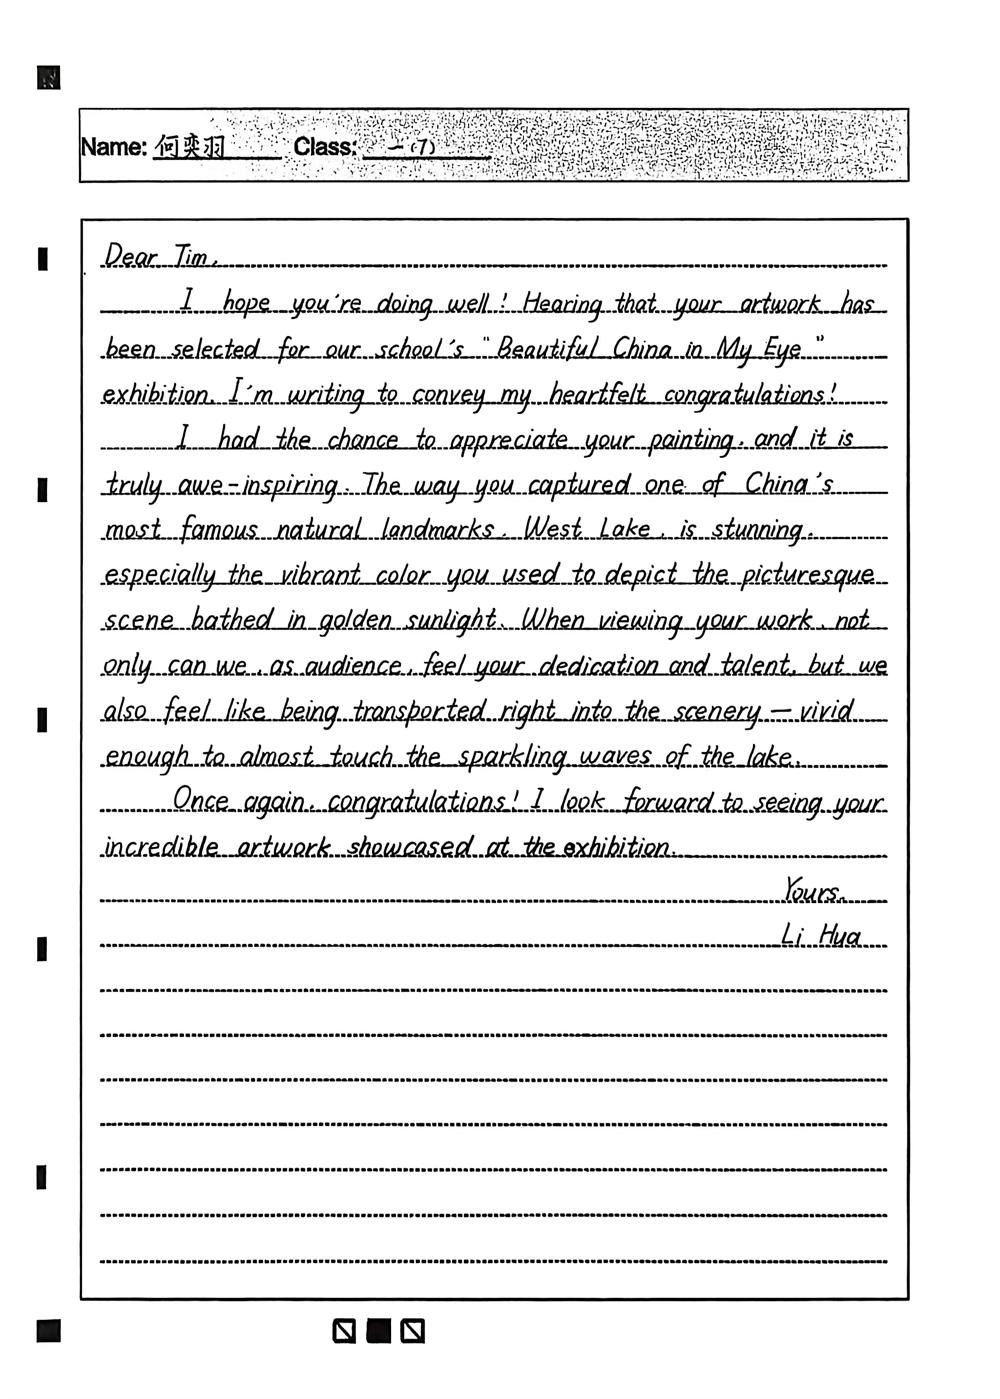 Name: 何奕羽 Class: 一(7)
Dear Tim,
I hope you're doing well! Hearing that your artwork has
been selected for our school's "Beautiful China in My Eye"
exhibition, I'm writing to convey my heartfelt congratulations!
I had the chance to appreciate your painting, and it is
truly awe-inspiring. The way you captured one of China's
most famous natural landmarks, West Lake, is stunning,
especially the vibrant color you used to depict the picturesque
scene bathed in golden sunlight. When viewing your work, not
only can we, as audience, feel your dedication and talent, but we
also feel like being transported right into the scenery — vivid
enough to almost touch the sparkling waves of the lake.
Once again, congratulations! I look forward to seeing your
incredible artwork showcased at the exhibition.
Yours,
Li Hua